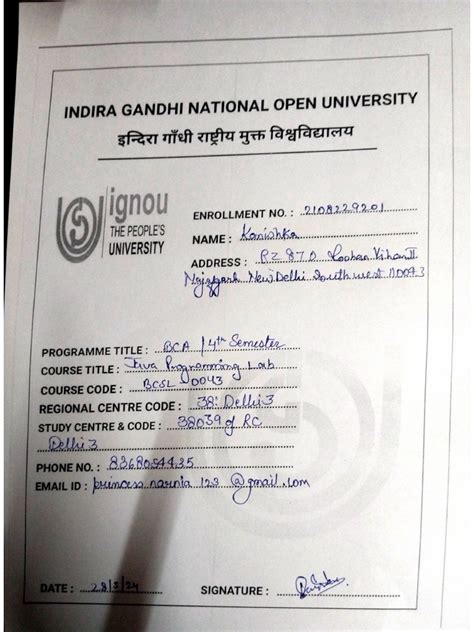 INDIRA GANDHI NATIONAL OPEN UNIVERSITY
इन्दिरा गाँधी राष्ट्रीय मुक्त विश्वविद्यालय
ignou
THE PEOPLE'S
UNIVERSITY
ENROLLMENT NO. : 2108229201
NAME : Kanishka
ADDRESS : RZ 87 D Vihar II
New Delhi South west 110043
PROGRAMME TITLE : BCA / 4th Semester
COURSE TITLE : Java Programming Lab
COURSE CODE : BCSL 0043
REGIONAL CENTRE CODE : 38: Delhi 3
STUDY CENTRE & CODE : 38039 of RC
Delhi 3
PHONE NO. : 8368054435
EMAIL ID : princess narnia 123 @gmail.com
DATE : 28/3/24
SIGNATURE :